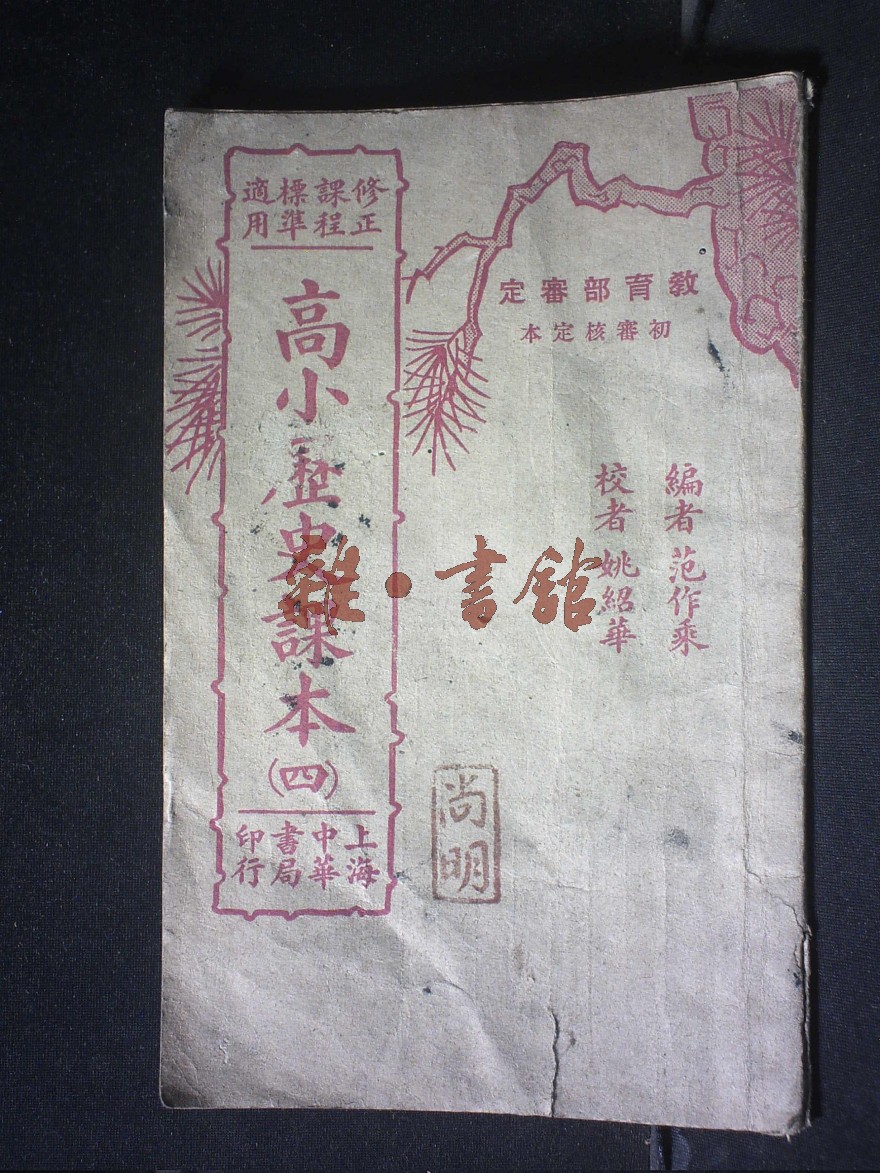 教育部審定
初審核定本
編者 范作乘
校者 姚紹華
修正課程標準適用
高小歷史課本
(四)
上海中華書局印行
尚明
雜·書館